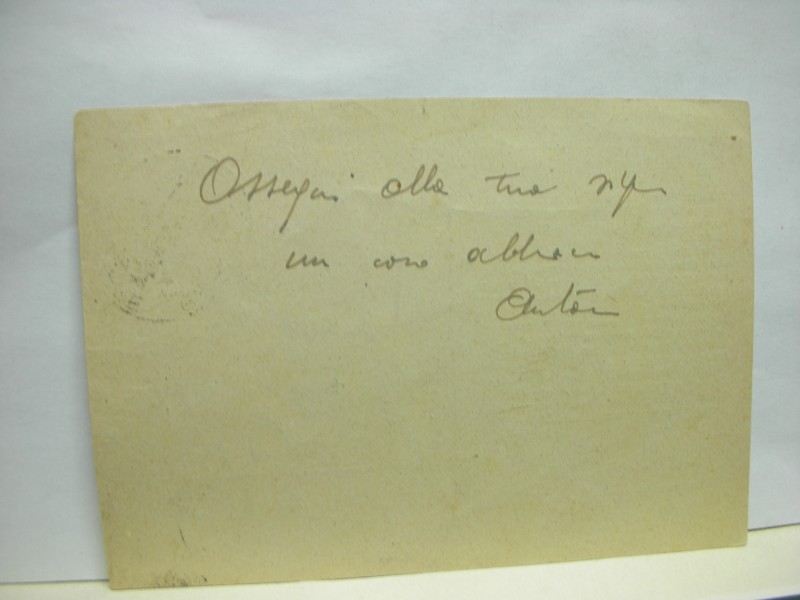 Ossequi alla tua sig
un caro abbracc
Anton